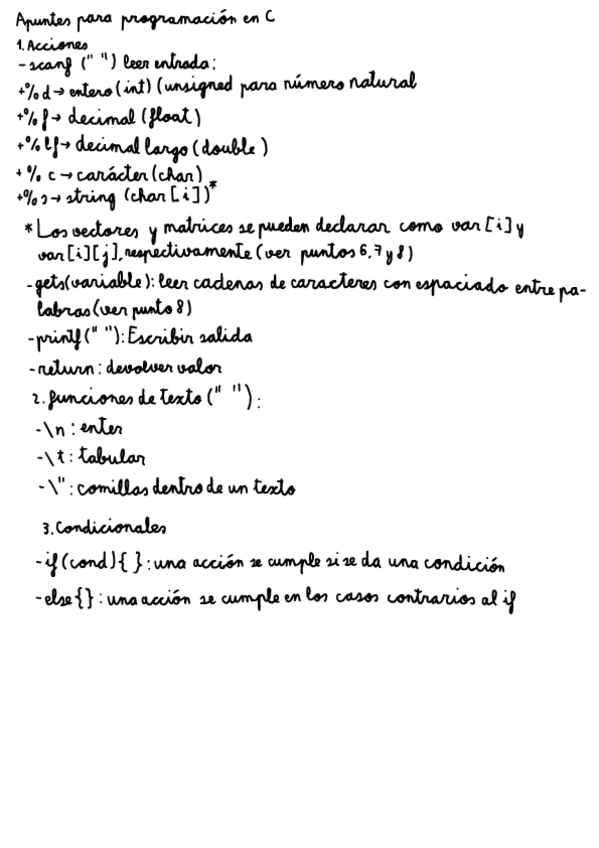 Apuntes para programación en C
1. Acciones
- scanf (" ") leer entrada:
+%d → entero (int) (unsigned para número natural
+%f → decimal (float)
+%lf → decimal largo (double)
+%c → carácter (char)
+%s → string (char [i])*
* Los vectores y matrices se pueden declarar como var [i] y
var [i][j], respectivamente (ver puntos 6, 7 y 8)
- gets(variable): leer cadenas de caracteres con espaciado entre pa-
labras (ver punto 8)
- printf (" "): Escribir salida
- return: devolver valor
2. funciones de texto (" "):
- \n : enter
- \t : tabular
- \" : comillas dentro de un texto
3. Condicionales
- if (cond) { } : una acción se cumple si se da una condición
- else { } : una acción se cumple en los casos contrarios al if